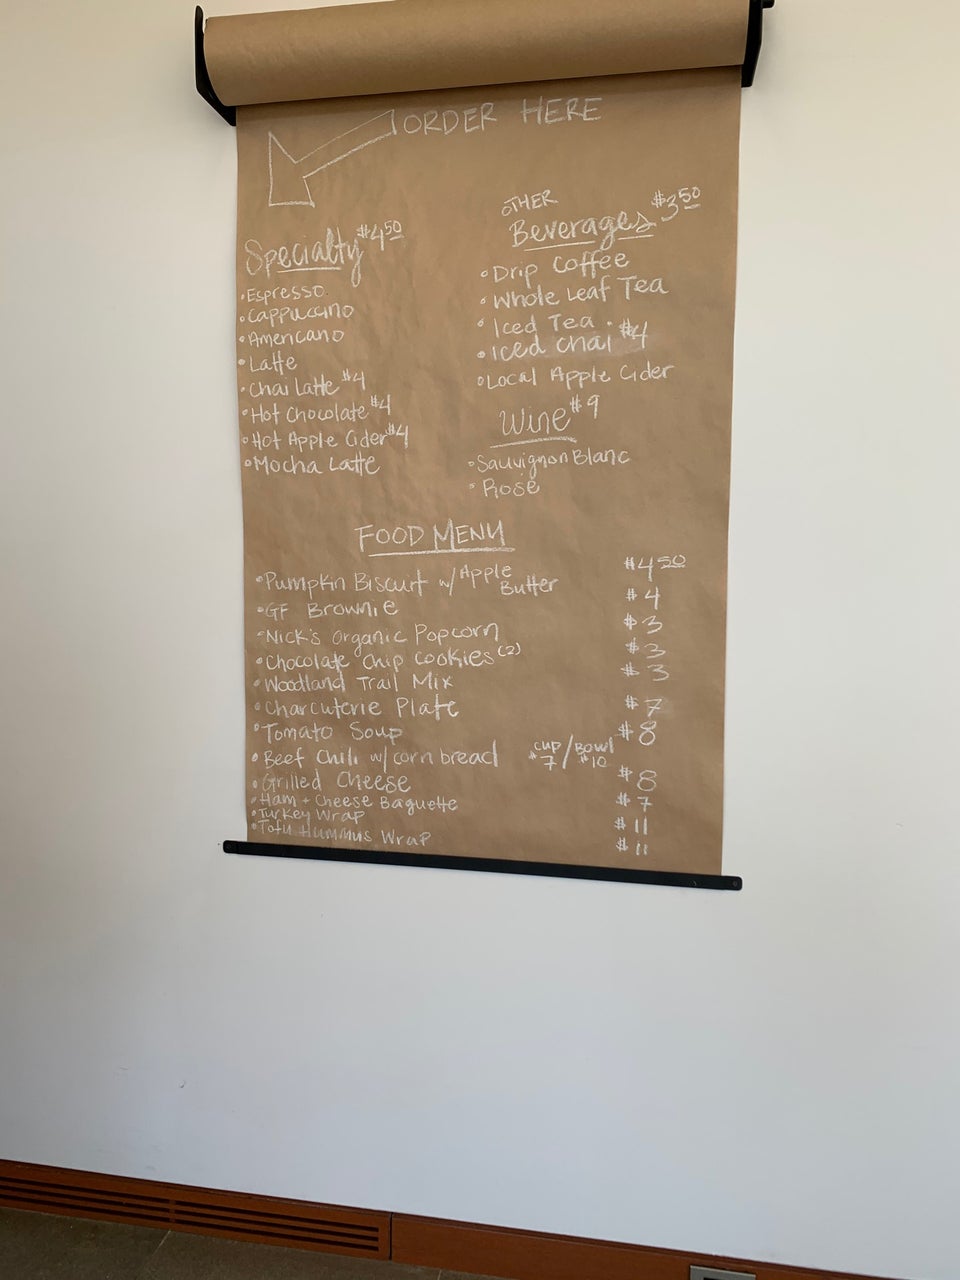 ORDER HERE
Specialty $4.50
• Espresso
• Cappuccino
• Americano
• Latte
• Chai Latte $4
• Hot Chocolate $4
• Hot Apple Cider $4
• Mocha Latte
OTHER
Beverages $3.50
• Drip Coffee
• Whole Leaf Tea
• Iced Tea
• Iced Chai $4
• Local Apple Cider
Wine $9
• Sauvignon Blanc
• Rosé
FOOD MENU
• Pumpkin Biscuit w/ Apple Butter $4.50
• GF Brownie $4
• Nick's Organic Popcorn $3
• Chocolate Chip Cookies (2) $3
• Woodland Trail Mix $3
• Charcuterie Plate $7
• Tomato Soup $8
• Beef Chili w/ corn bread CUP $7 / BOWL $10
• Grilled Cheese $8
• Ham + Cheese Baguette $7
• Turkey Wrap $11
• Tofu Hummus Wrap $11